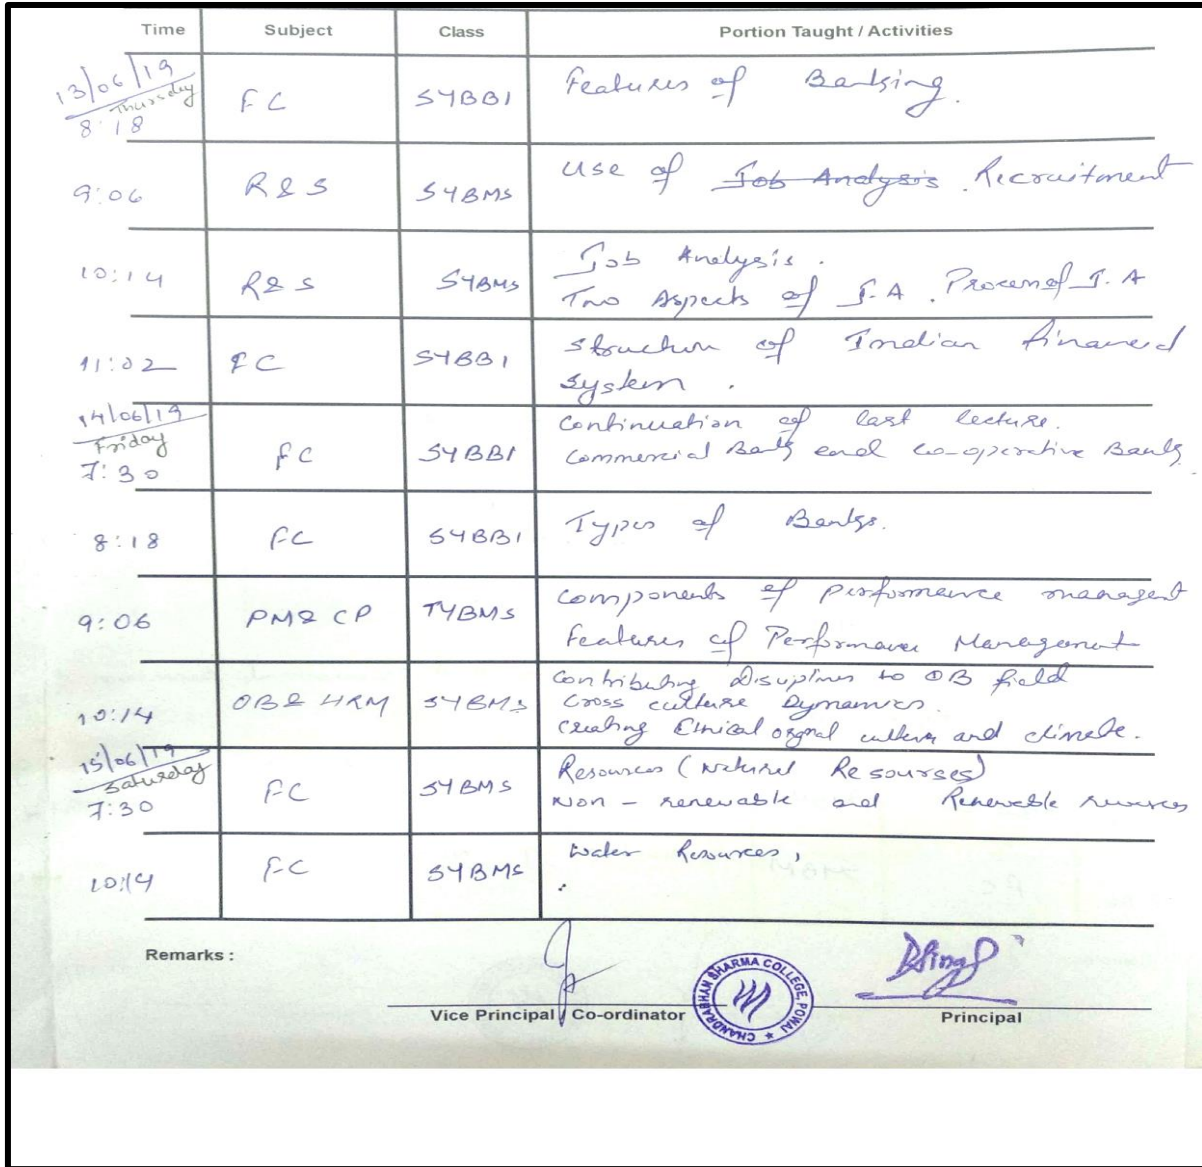 Time Subject Class Portion Taught / Activities
13/06/19
Thursday
8:18 FC SYBBI Features of Banking.
9:06 R & S SYBMS Use of Job Analysis. Recruitment
10:14 R & S SYBMS Job Analysis.
Two Aspects of J.A. Process of J.A
11:02 FC SYBBI Structure of Indian Financial
System.
14/06/19
Friday
7:30 FC SYBBI Continuation of last lecture.
Commercial Bank and Co-operative Bank.
8:18 FC SYBBI Types of Banks.
9:06 PM & CP TYBMS Components of performance managent
Features of Performance Management
10:14 OB & HRM SYBMS Contributing Disciplines to OB field
Cross culture Dynamics.
Creating Ethical orgnal culture and climate.
15/06/19
Saturday
7:30 FC SYBMS Resources (Natural Resourses)
Non-renewable and Renewable resources
10:14 FC SYBMS Water Resources,
Remarks :
Vice Principal / Co-ordinator
CHANDRABHAN SHARMA COLLEGE, POWAI
Principal